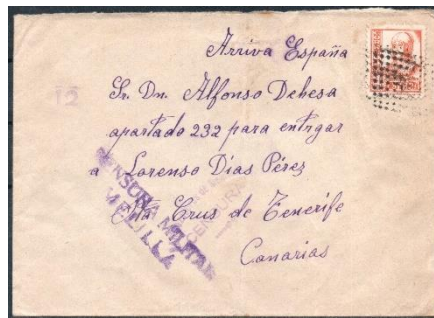 Arriva España
Sr. Dn. Alfonso Debesa
apartado 232 para entrgar
a Lorenso Días Pérez
Sta Crus de Tenerife
Canarias
CENSURA MILITAR
MELILLA
CENSURA
12